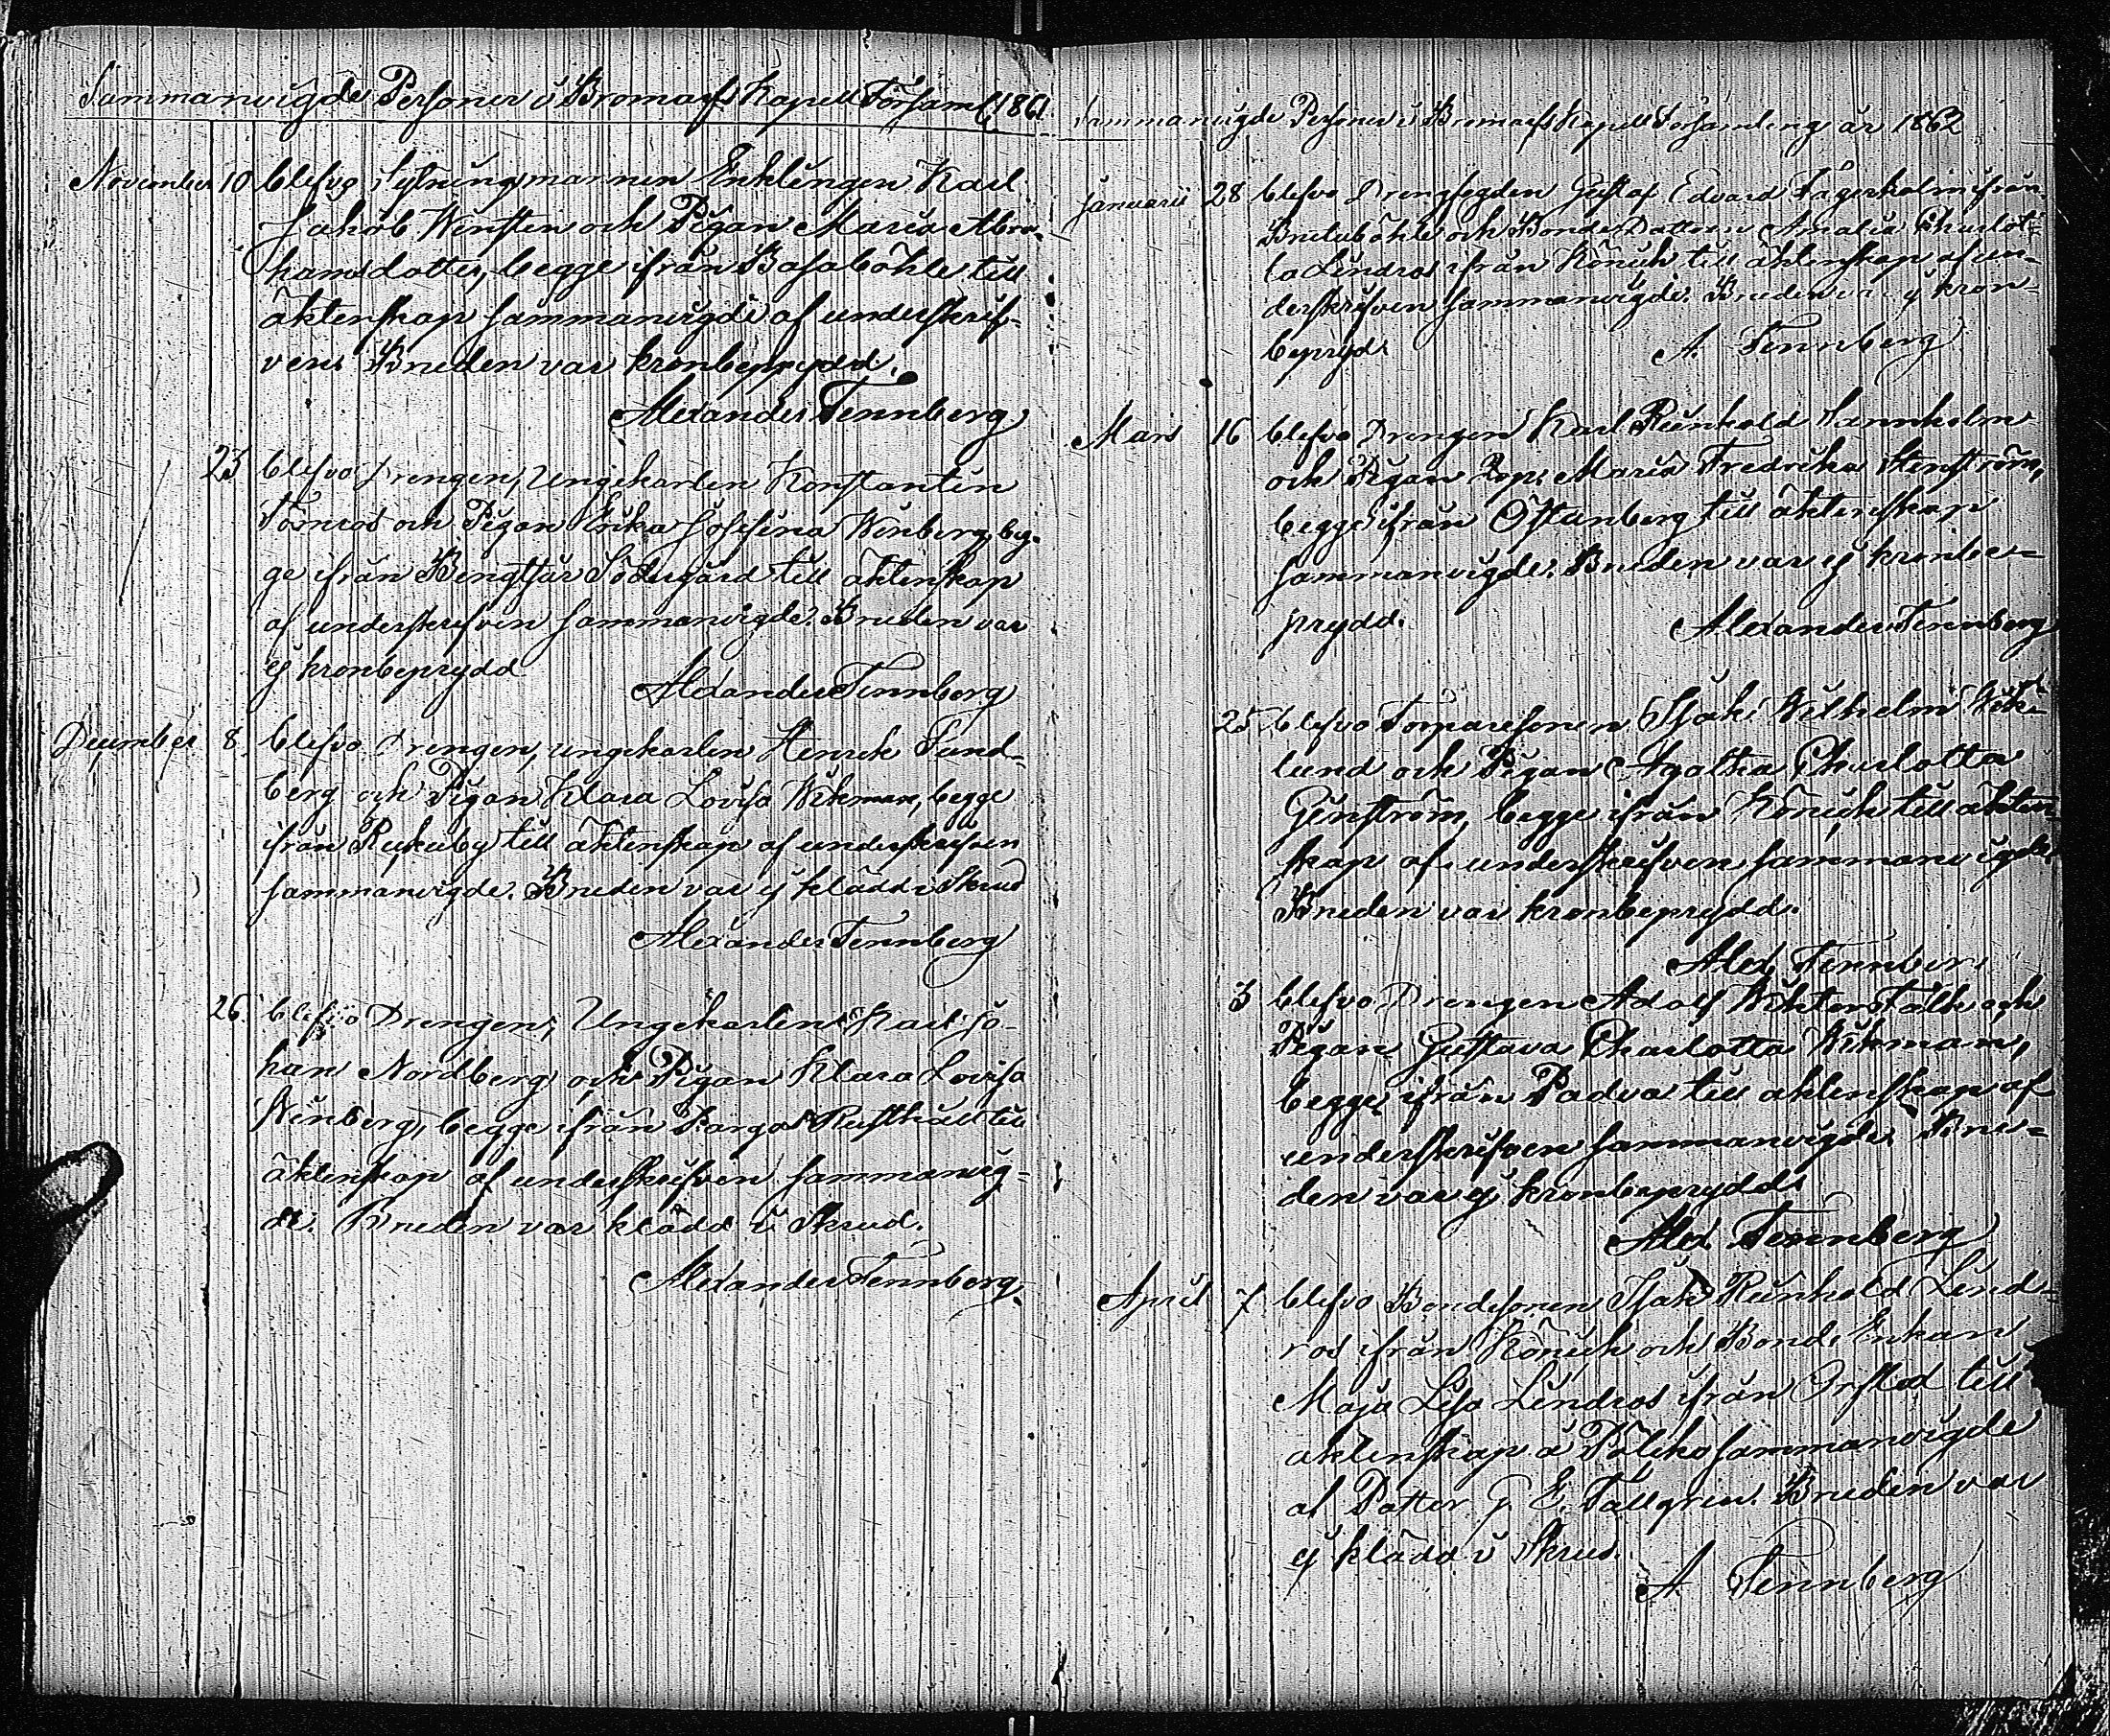 Sammanvigde Personer i Bromarfs Kapell Församl. 1861.
November 10 blefvo Sytningsmannen Enklingen Karl
Jakob Wensten och Pigan Maria Abra-
hamsdotter, begge ifrån Basaböhle till
äktenskap sammanvigde af underskrif-
ven. Bruden var kronbeprydd.
Alexander Tennberg
23 blefvo Drengen, Ungekarlen Konstantin
Törnros och Pigan Erika Josefina Winberg, beg-
ge ifrån Bengttjär Södergård till äktenskap
af underskrifven sammanvigde. Bruden var
ej kronbeprydd
Alexander Tennberg
December 8. blefvo Drengen, ungekarlen Henrik Sund-
berg och Pigan Klara Lovisa Wikman, begge
ifrån till äktenskap af underskrifven
sammanvigde. Bruden var ej klädd i Skrud
Alexander Tennberg
26. blefvo Drengen, Ungekarlen Karl Jo-
han Nordberg och Pigan Klara Lovisa
Winberg, begge ifrån Rusthåll till
äktenskap af underskrifven sammanvig-
de. Bruden var klädd i Skrud.
Alexander Tennberg.
Sammanvigde Personer i Bromarfs Kapell Församling år 1862
Januarii 28 blefvo Drengfogden Gustaf Edvard Fagerholm ifrån
och Bonde Dottren Amalia Charlot-
ta Lindros ifrån Könick till äktenskap af un-
derskrifven sammanvigde. Bruden var ej kron-
beprydd.
A. Tennberg
Mars 16 blefvo Drengen Karl Reinhold
och Pigan Maria Fredrika Stenström,
begge ifrån Östanberg till äktenskap
sammanvigde. Bruden var ej kronbe-
prydd.
Alexander Tennberg
25 blefvo Torparesonen Isak Wilhelm Wik-
lund och Pigan Agatha Charlotta
Genström, begge ifrån Könick till äkten-
skap af underskrifven sammanvigde.
Bruden var kronbeprydd.
Alex Tennberg
3 blefvo Drengen Adolf Wiktor Fälth och
Pigan Gustava Charlotta Wikman,
begge ifrån Padva till äktenskap af
underskrifven sammanvigde. Bru-
den var ej kronbeprydd.
Alex Tennberg
April 7 blefvo Bondesonen Isak Reinhold Lind-
ros ifrån Könick och Bonde Enkan
Maja Lisa Lindros ifrån Orsted till
äktenskap å sammanvigde
af Pastor J. E. Tallgren. Bruden var
ej klädd i Skrud.
A Tennberg